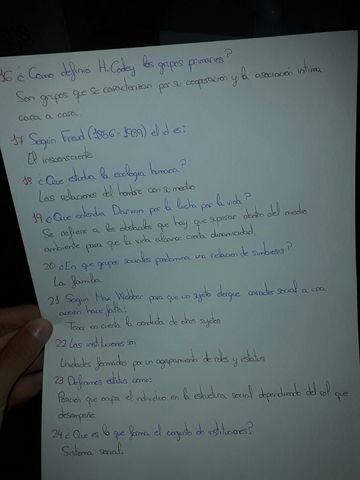 16 ¿Como definió H. Cooley los grupos primarios?
Son grupos que se caracterizan por su cooperacion y la asociación intima
cara a cara.
17 Según Freud (1856-1939) el d es:
El insconsciente
18 ¿Que estudia la ecología humana?
Las relaciones del hombre con su medio
19 ¿Que entendia Darwin por la lucha por la vida?
Se refiere a los obstaculos que hay que superar dentro del medio
ambiente para que la vida alcance cierta
20 ¿En que grupos sociales predomina una relacion de simbiosis?
La familia
21 Según Max Webber para que un sujeto otorgue caracter social a una
accion hace falta:
Tener en cuenta la conducta de otros sujetos
22 Las instituciones son
Unidades formadas por un agrupamiento de roles y estatus
23 Definimos estatus como:
Posicion que ocupa el individuo en la estructura social dependiendo del rol que
desempeñe
24 ¿Que es lo que forma el conjunto de instituciones?
Sistema social.